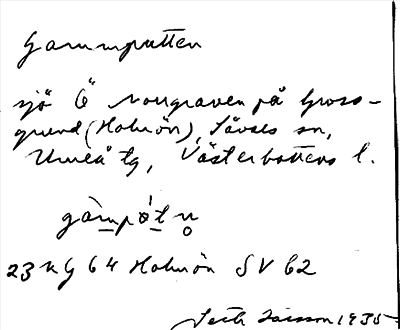 Gammputten
sjö Ö Norrgraven på Gross-
grund (Holmön), Sävars sn,
Umeå tg, Västerbottens l.
gàm̲pót̲n̥
23 K G 64 Holmön SV b2
1935